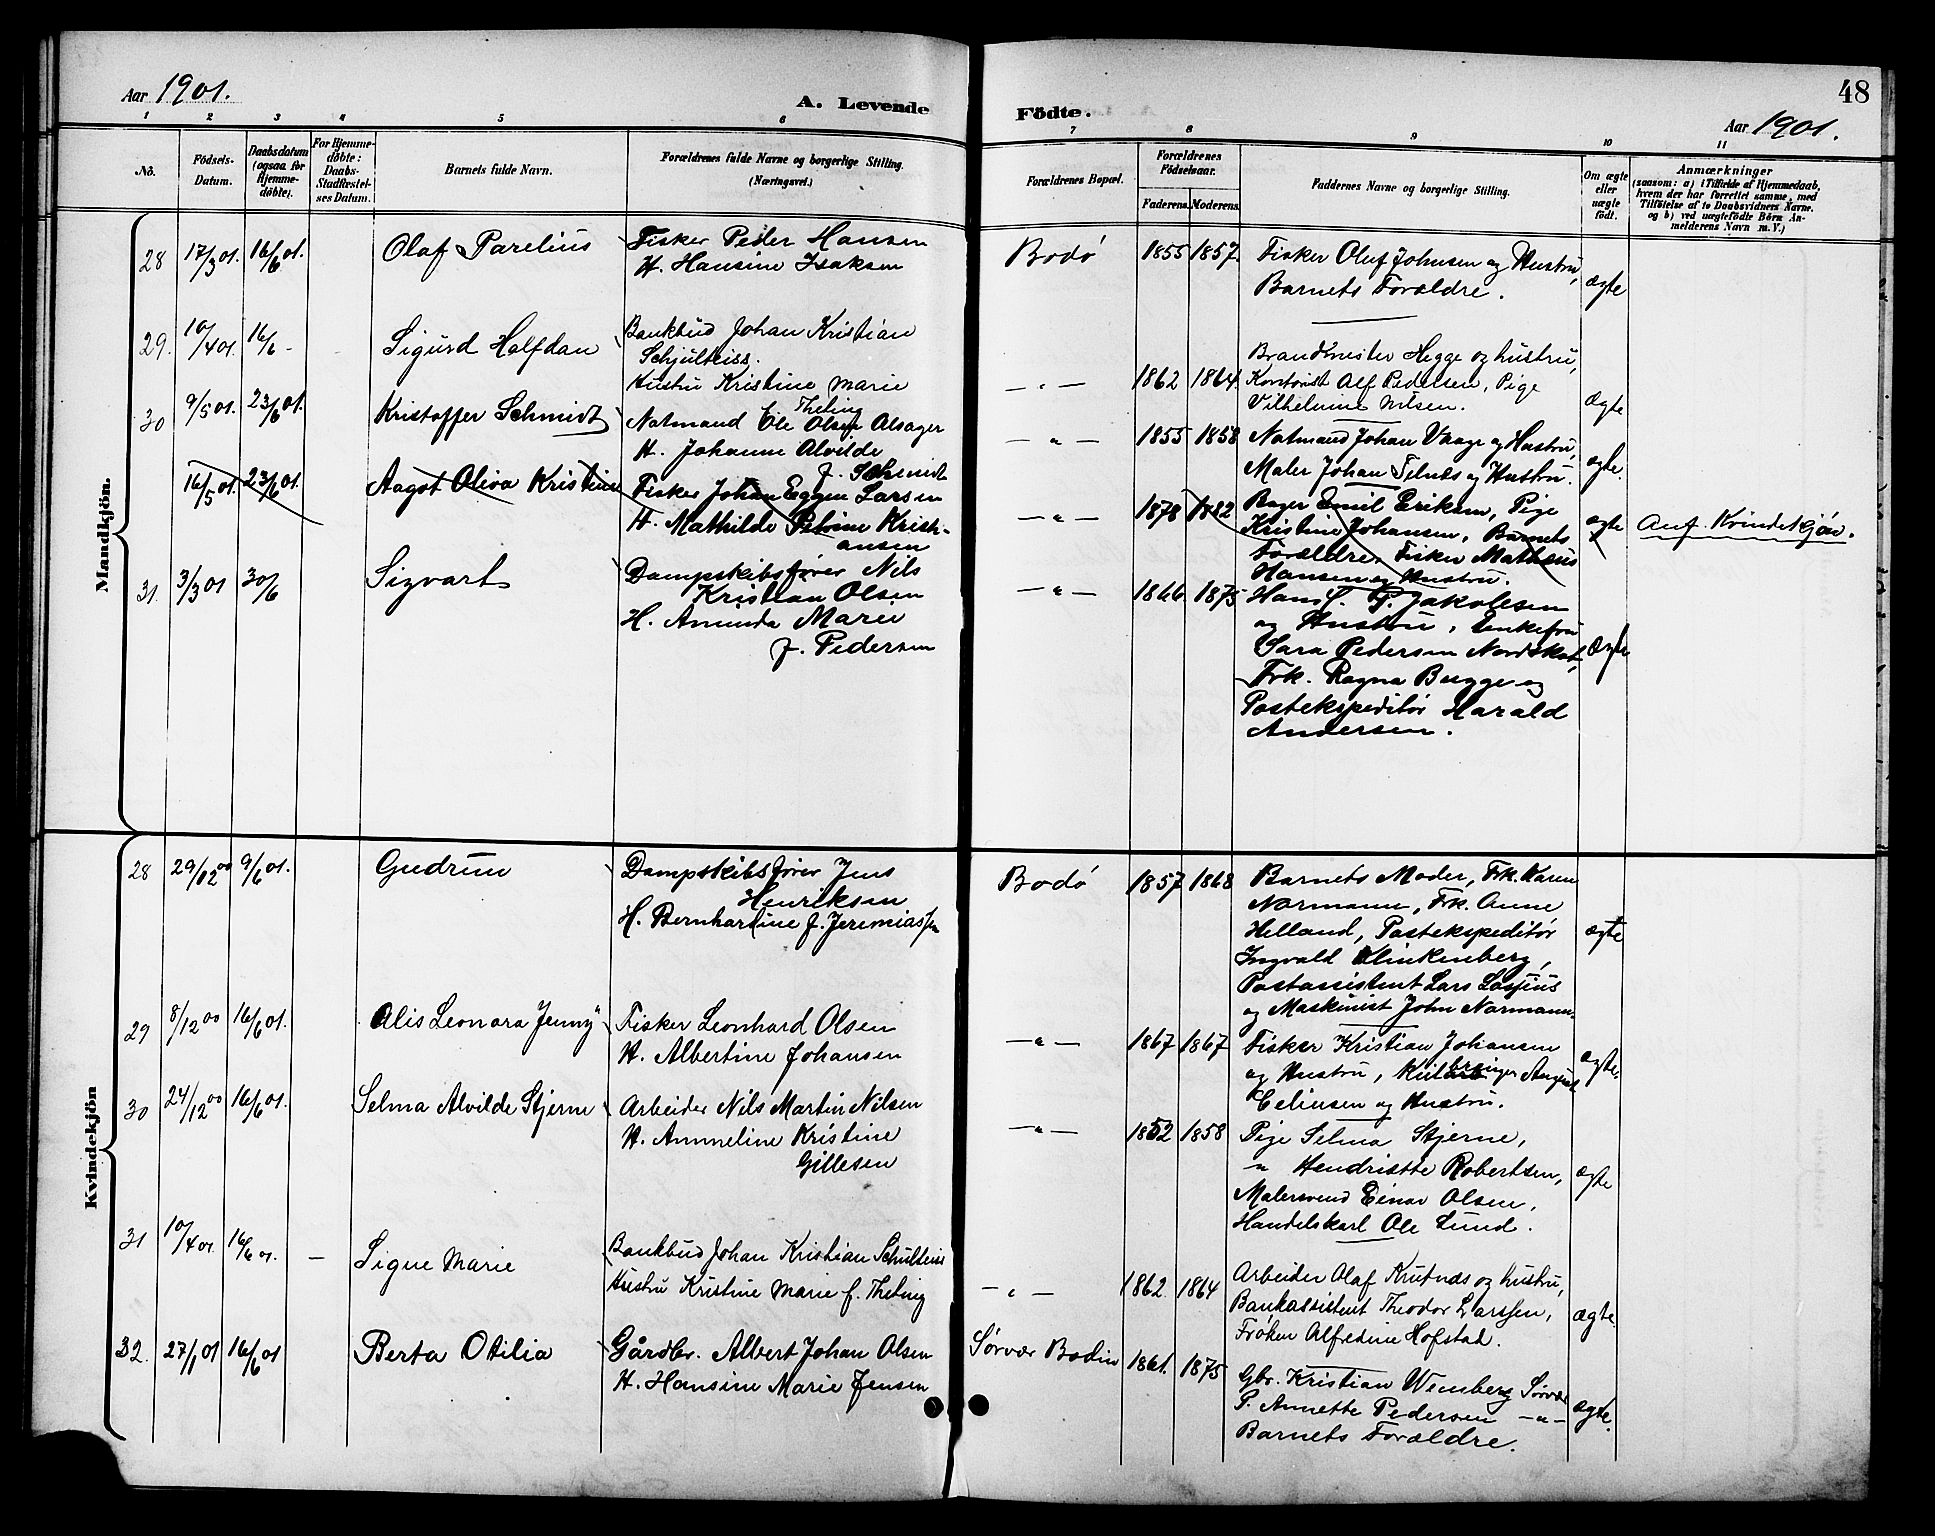 Aar 1901.
A. Levende
1 2 3 4 5 6
No.
Födsels-
Datum.
Daabsdatum
(ogsaa for
Hjemme-
døbte).
For Hjemme-
døbte:
Daabs-
Stadfæstel-
ses Datum.
Barnets fulde Navn.
Forældrenes fulde Navne og borgerlige Stilling.
(Næringsvei.)
Mandkjön.
28 17/3 01. 16/6 01. Olaf Parelius Fisker Peder Hansen
H. Hansine Isaksen
29. 10/4 01. 16/6 - Sigurd Halfdan Bankbud Johan Kristian
Schjulteiss.
Hustru Kristine Marie
Theting
30 9/5 01. 23/6 01. Kristoffer Schmidt Natmand Ole Olsen Alsager
H. Johanne Alvilde
f. Schmidt
16/5 01. 23/6 01. Aagot Oliva Kristine Fisker Johan Eggen Larsen
H. Mathilde Petrine Kristi-
ansen
31. 3/3 01 30/6 Sigvart Dampskibsfører Nils
Kristian Olsen
H. Amunda Marie
f. Pedersen
Kvindekjön
28 29/12 00 9/6 01. Gudrun Dampskibsfører Jens
Henriksen
H. Bernhardine f. Jeremiassen
29 8/12 00 16/6 01. Alis Leonora Jenny Fisker Leonhard Olsen
H. Albertine Johansen
30 24/12 00 16/6 01. Selma Alvilde Stjerne Arbeider Nils Martin Nilsen
H. Anneline Kristine
Gillesen
31 10/4 01 16/6 01. - Signe Marie Bankbud Johan Kristian Schulteiss
Hustru Kristine Marie f. Theting
32. 27/1 01 16/6 01 Berta Otilia Gårdbr. Albert Johan Olsen
H. Hansine Marie Jensen
48
Födte.
Aar 1901.
7 8 9 10 11
Forældrenes Bopæl.
Forældrenes
Födselsaar.
Faderens. Moderens.
Faddernes Navne og borgerlige Stilling.
Om ægte
eller
uægte
födt.
Anmærkninger
(saasom: a) i Tilfælde af Hjemmedaab,
hvem der har forrettet samme, med
Tilföielse af to Daabsvidners Navne.
og b) ved uægtefödte Börn An-
melderens Navn m. V.)
Bodø 1855 1857 Fisker Oluf Johnsen og Hustru,
Barnets Forældre. ægte
Brandmester Hegge og hustru,
- " - 1862 1864. Kontorist Alf Pedersen, Pige
Vilhelmine Nilsen. ægte
- " - 1855 1858 Natmand Johan Vaage og Hustru,
Maler Johan og Hustru. ægte.
- " - 1878 1882 Bager Emil Eriksen, Pige
Kristine Johansen, Barnets
Forældre, Fisker Mathæus
Hansen og Hustru. ægte Anf. Kvindekjøn.
- " - 1866. 1875 Hans P. Jakobsen
og Hustru, Enkefru
Sara Pedersen Nordskot,
Frk. Ragna Bugge og
Postekspeditør Harald
Andersen. Ægte
Bodø 1857 1868 Barnets Moder, Frk. Karen
Normann, Frk. Anne
Helland, Postekspeditør
Ingvald Klinkenberg,
Postassistent Lars
og Maskinist John Normann. ægte
- " - 1867 1867 Fisker Kristian Johansen
og Hustru, August
Celiusen og Hustru. ægte.
- " - 1852 1858 Pige Selma Stjerne,
" Hendriette Robertsen,
Malersvend Einar Olsen,
Handelskarl Ole Lund. ægte
- " - 1862. 1864 Arbeider Olaf Knutnds og hustru,
Bankassistent Theodor Larssen,
Frøken Alfredine Hofstad. ægte.
Sørvær Bodin 1861. 1875 Gbr. Kristian Wemberg Sørvær
P. Annette Pedersen - " -
Barnets Forældre. ægte.